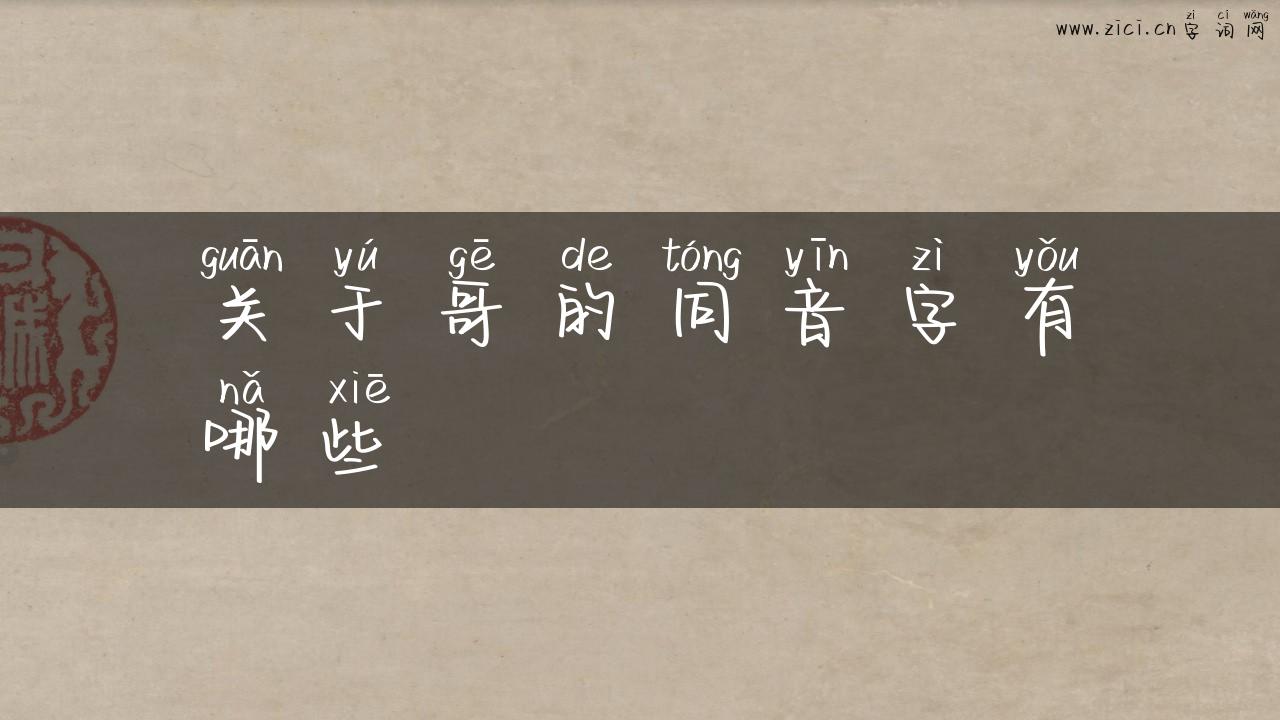 zì cí wǎng
www.zici.cn 字词网
guān yú gē de tóng yīn zì yǒu
关于哥的同音字有
nǎ xiē
哪些